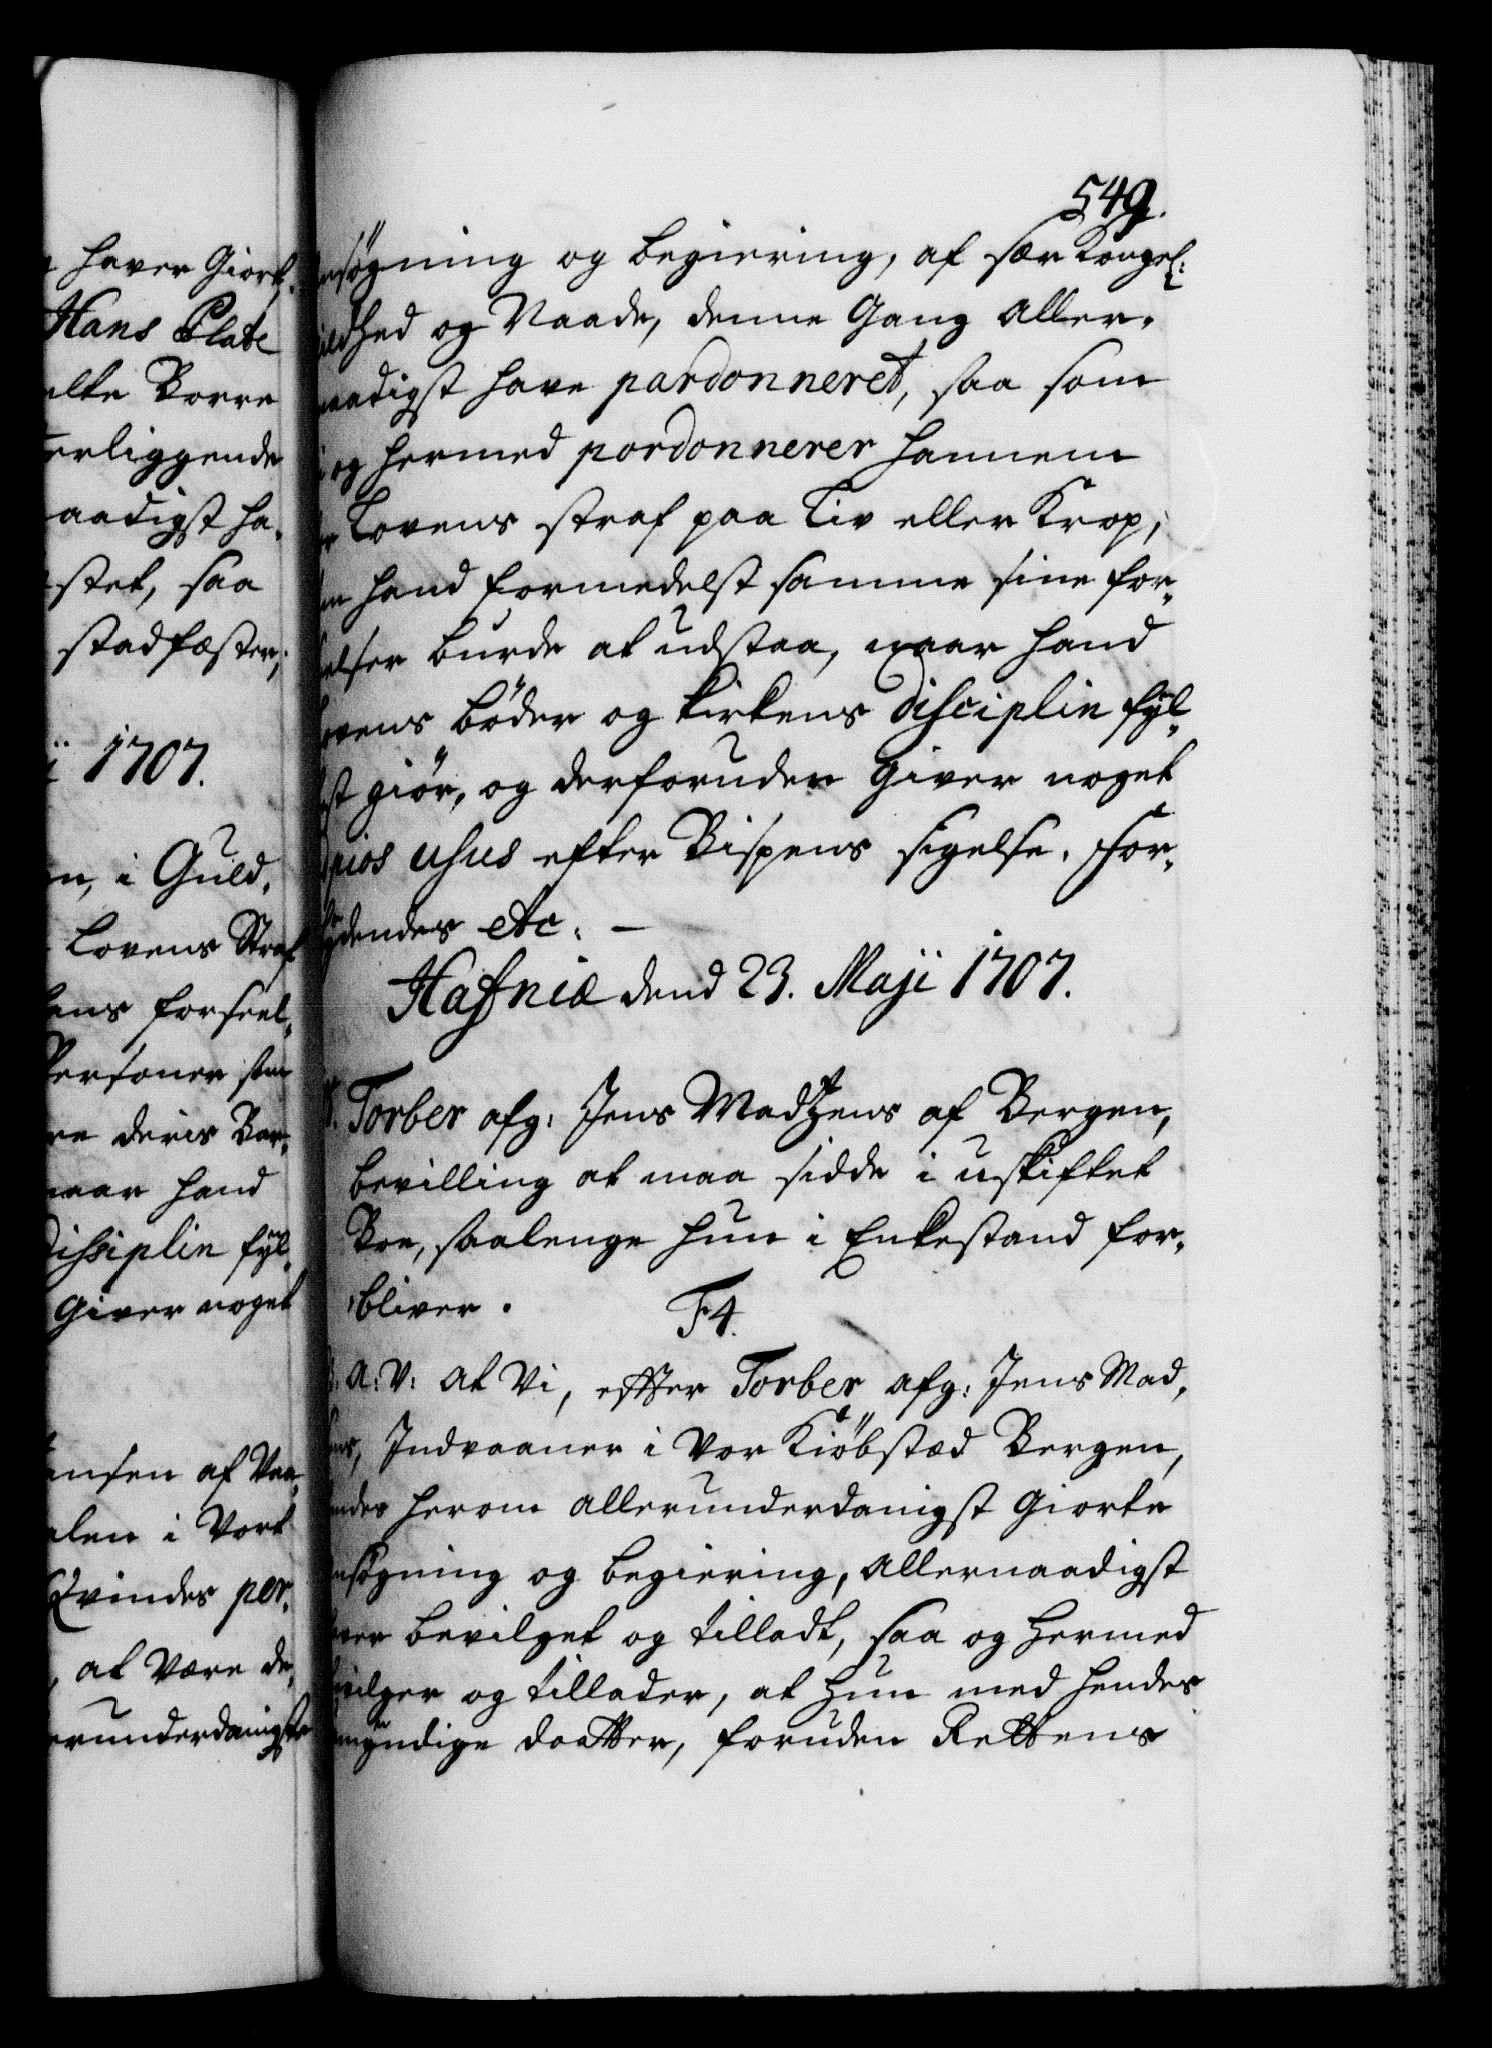 haver Giort
Hans Plate
Borre
erliggende
aadigst ha,
stet, saa
stadfæster,
1707.
i Guld,
Lovens Straf
forseel,
Personer som
deris Bør,
naar hand
Dissiplin fyl,
Giver noget
ansen af Vaa,
alen i Vort
Qvindes per,
at være de,
erunderdanigste
549.
nsøgning og begiering, af sær Kongel:
ildhed og Naade, denne Gang Aller,
naadigst have pardonneret, saa som
og hermed pordonnerer hannem
Lovens straf paa Liv eller Krop,
hand formedelst samme sine for,
elser burde at udstaa, naar hand
ovens bøder og kirkens disciplin fyl,
st giör, og derforuden Giver noget
pios usus efter Bispens sigelse. For,
ydendes etc. —
Hafniæ dend 23. Maji 1707.
Torber afg: Jens Madzens af Bergen,
bevilling at maa sidde i uskiftet
Boe, saalenge hun i Enkestand for,
bliver.
F4.
A: V: at Vi, effter Torber afg: Jens Mad,
ens, Indvaaner i Vor Kiöbstæd Bergen,
endes herom allerunderdanigst Giorte
nsøgning og begiering, Allernaadigst
haver bevilget og tilladt, saa og hermed
bevilger og tillader, at Hun med hendes
umyndige daatter, foruden Rettens